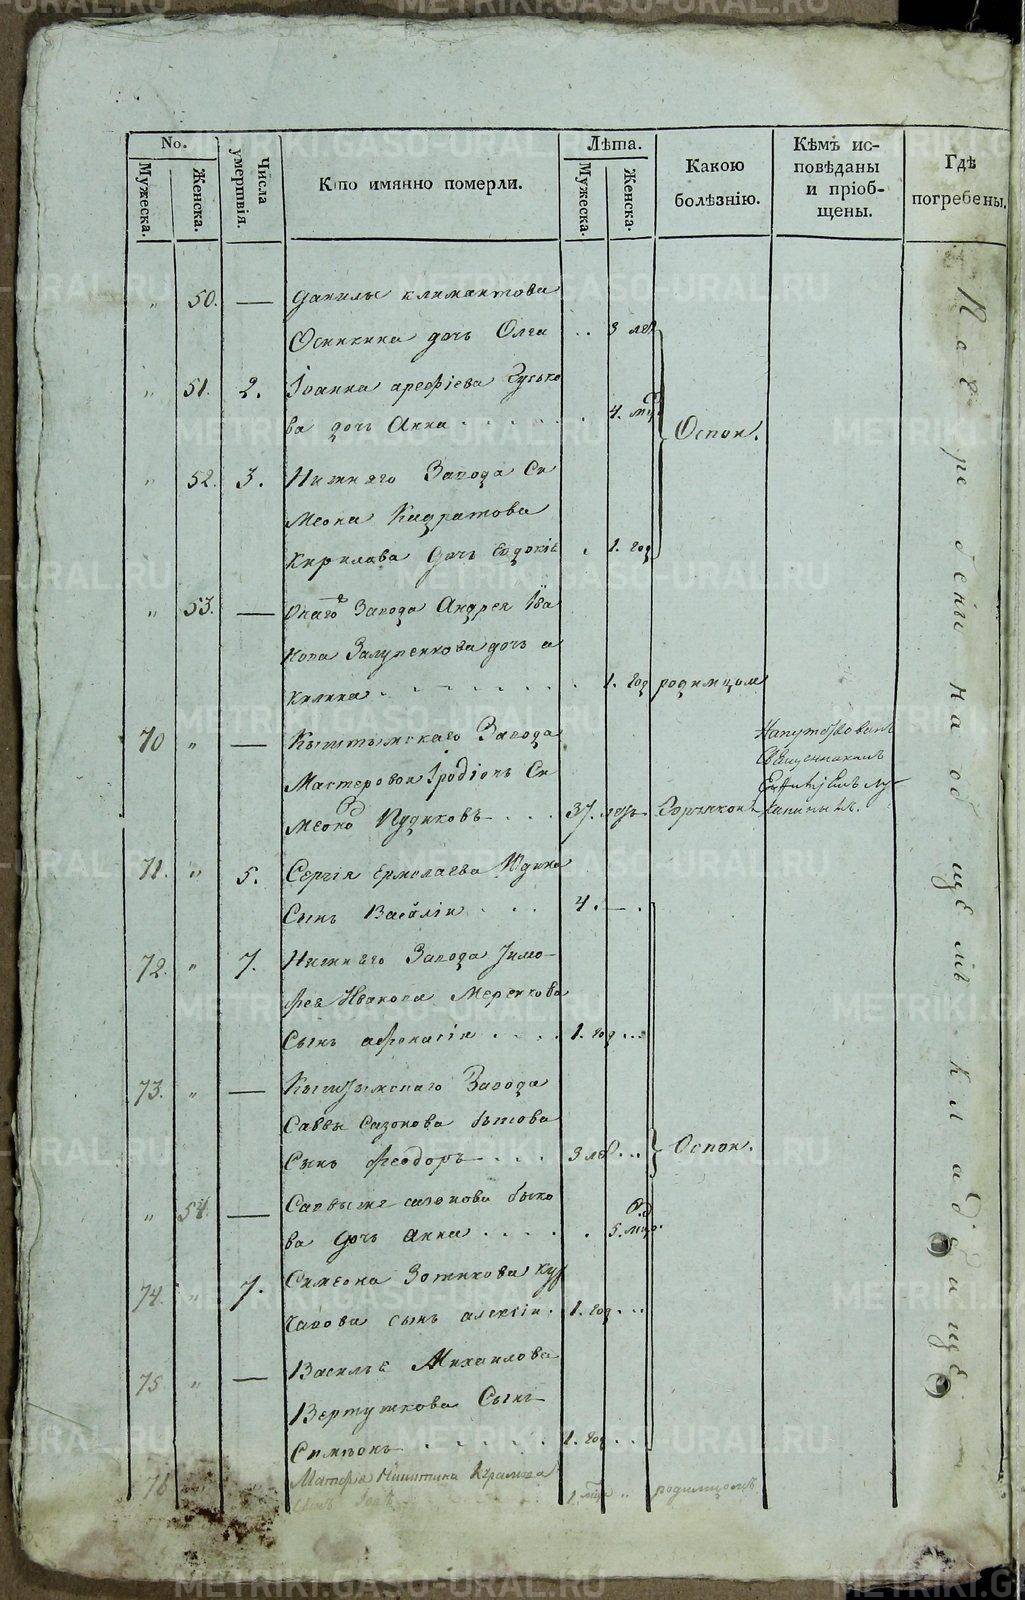 No.
Мужеска.
Женска.
Числа умертвія.
Кто имянно померли.
Лѣта.
Мужеска.
Женска.
Какою болѣзнію.
Кѣмъ исповѣданы и пріобщены.
Гдѣ погребены.
" 50. — Данилы Климантова
Осипкина дочь Олга .. 3 лет
" 51. 2. Іоанна Арефіева Гусько
ва дочь Анна . . . . . 4. мцъ
Оспой.
" 52. 3. Нижняго Завода Си
меона Кадратова
Кирилова дочь Евдокіе . 1. год
" 53. — Онаго Завода Андрея Ива
нова дочь а
килина . . . . . 1. год родимцом
70 " — Кыштымскаго Завода
Мастеровой Иродіонъ Си
меонов Пудиковъ . . . 37. летъ Горячкой
Напутствованъ
Священникомъ
71. " 5. Сергія Ермолаева Юдина
Сынъ Василій . . . 4. — .
72. " 7. Нижняго Завода Тимо-
фея Иванова Меренкова
Сынъ Афонасій . . . . 1. год ...
73. " — Кыштымскаго Завода
Саввы Сазонова Бытова
Сынъ Феодоръ . . . 3 лет ...
Оспой.
" 54. — Саввы же Сазонова быко
ва дочь Анна . . . . . 5. мцъ.
74. " 7. Симеона Зотикова
сынъ Алексій . 1. год ...
75 " — Василье Михаилова
Вертушкова Сынъ
Симеонъ . . . . . . 1. год ...
76 Матфея Никитина
сынъ 1. мцъ " родимцомъ
На отведенном кладбище.
METRIKI.GASO-URAL.RU